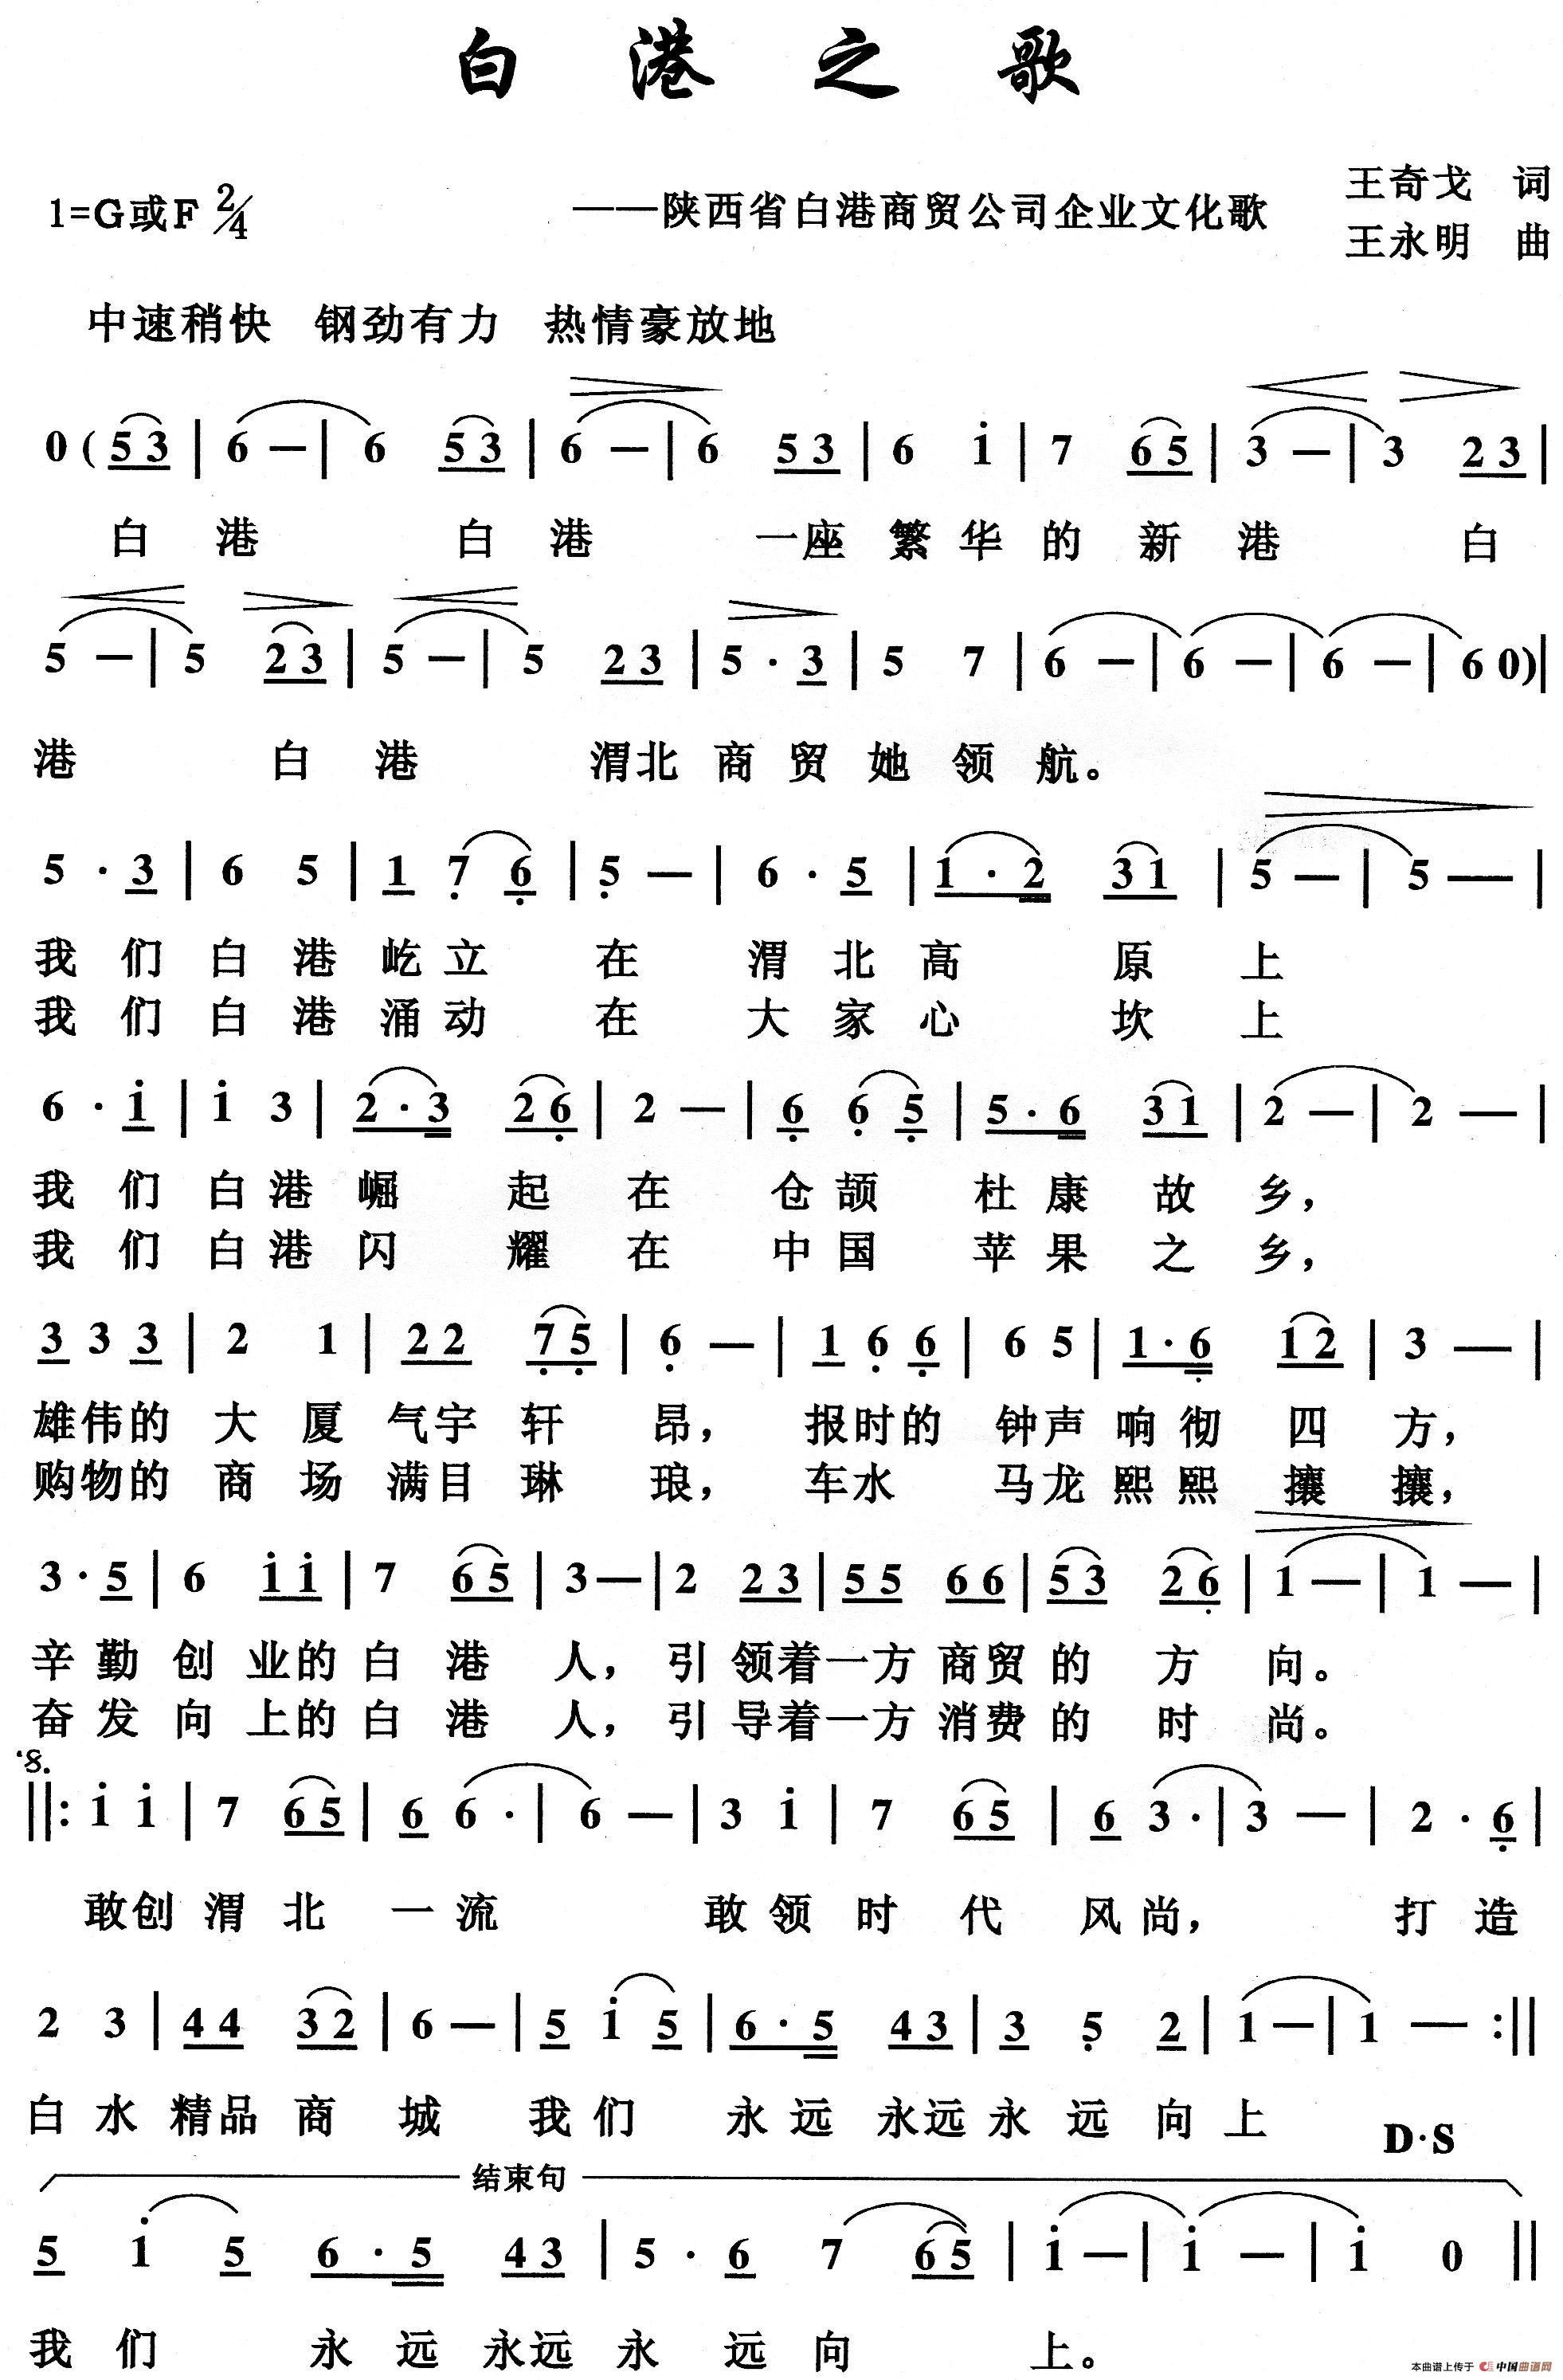 白港之歌
1=G或F 2/4 ——陕西省白港商贸公司企业文化歌 王奇戈 词
王永明 曲
中速稍快 钢劲有力 热情豪放地
0 ( 5 3 | 6 — | 6 5 3 | 6 — | 6 5 3 | 6 i | 7 6 5 | 3 — | 3 2 3 |
白港 白港 一座繁华的新港 白
5 — | 5 2 3 | 5 — | 5 2 3 | 5 · 3 | 5 7 | 6 — | 6 — | 6 — | 6 0 ) |
港 白港 渭北商贸她领航。
5 · 3 | 6 5 | 1 7 6 | 5 — | 6 · 5 | 1 · 2 3 1 | 5 — | 5 — |
我们白港屹立在渭北高原上
我们白港涌动在大家心坎上
6 · i | i 3 | 2 · 3 2 6 | 2 — | 6 6 5 | 5 · 6 3 1 | 2 — | 2 — |
我们白港崛起在仓颉杜康故乡，
我们白港闪耀在中国苹果之乡，
3 3 3 | 2 1 | 2 2 7 5 | 6 — | 1 6 6 | 6 5 | 1 · 6 1 2 | 3 — |
雄伟的大厦气宇轩昂，报时的钟声响彻四方，
购物的商场满目琳琅，车水马龙熙熙攘攘，
3 · 5 | 6 i i | 7 6 5 | 3 — | 2 2 3 | 5 5 6 6 | 5 3 2 6 | 1 — | 1 — |
辛勤创业的白港人，引领着一方商贸的方向。
奋发向上的白港人，引导着一方消费的时尚。
||: i i | 7 6 5 | 6 6 · | 6 — | 3 i | 7 6 5 | 6 3 · | 3 — | 2 · 6 |
敢创渭北一流 敢领时代风尚， 打造
2 3 | 4 4 3 2 | 6 — | 5 i 5 | 6 · 5 4 3 | 3 5 2 | 1 — | 1 — :||
白水精品商城 我们 永远永远永远向上
D·S
结束句
5 i 5 6 · 5 4 3 | 5 · 6 7 6 5 | i — | i — | i 0 ||
我们 永远永远永远向 上。
本曲谱上传于 中国曲谱网